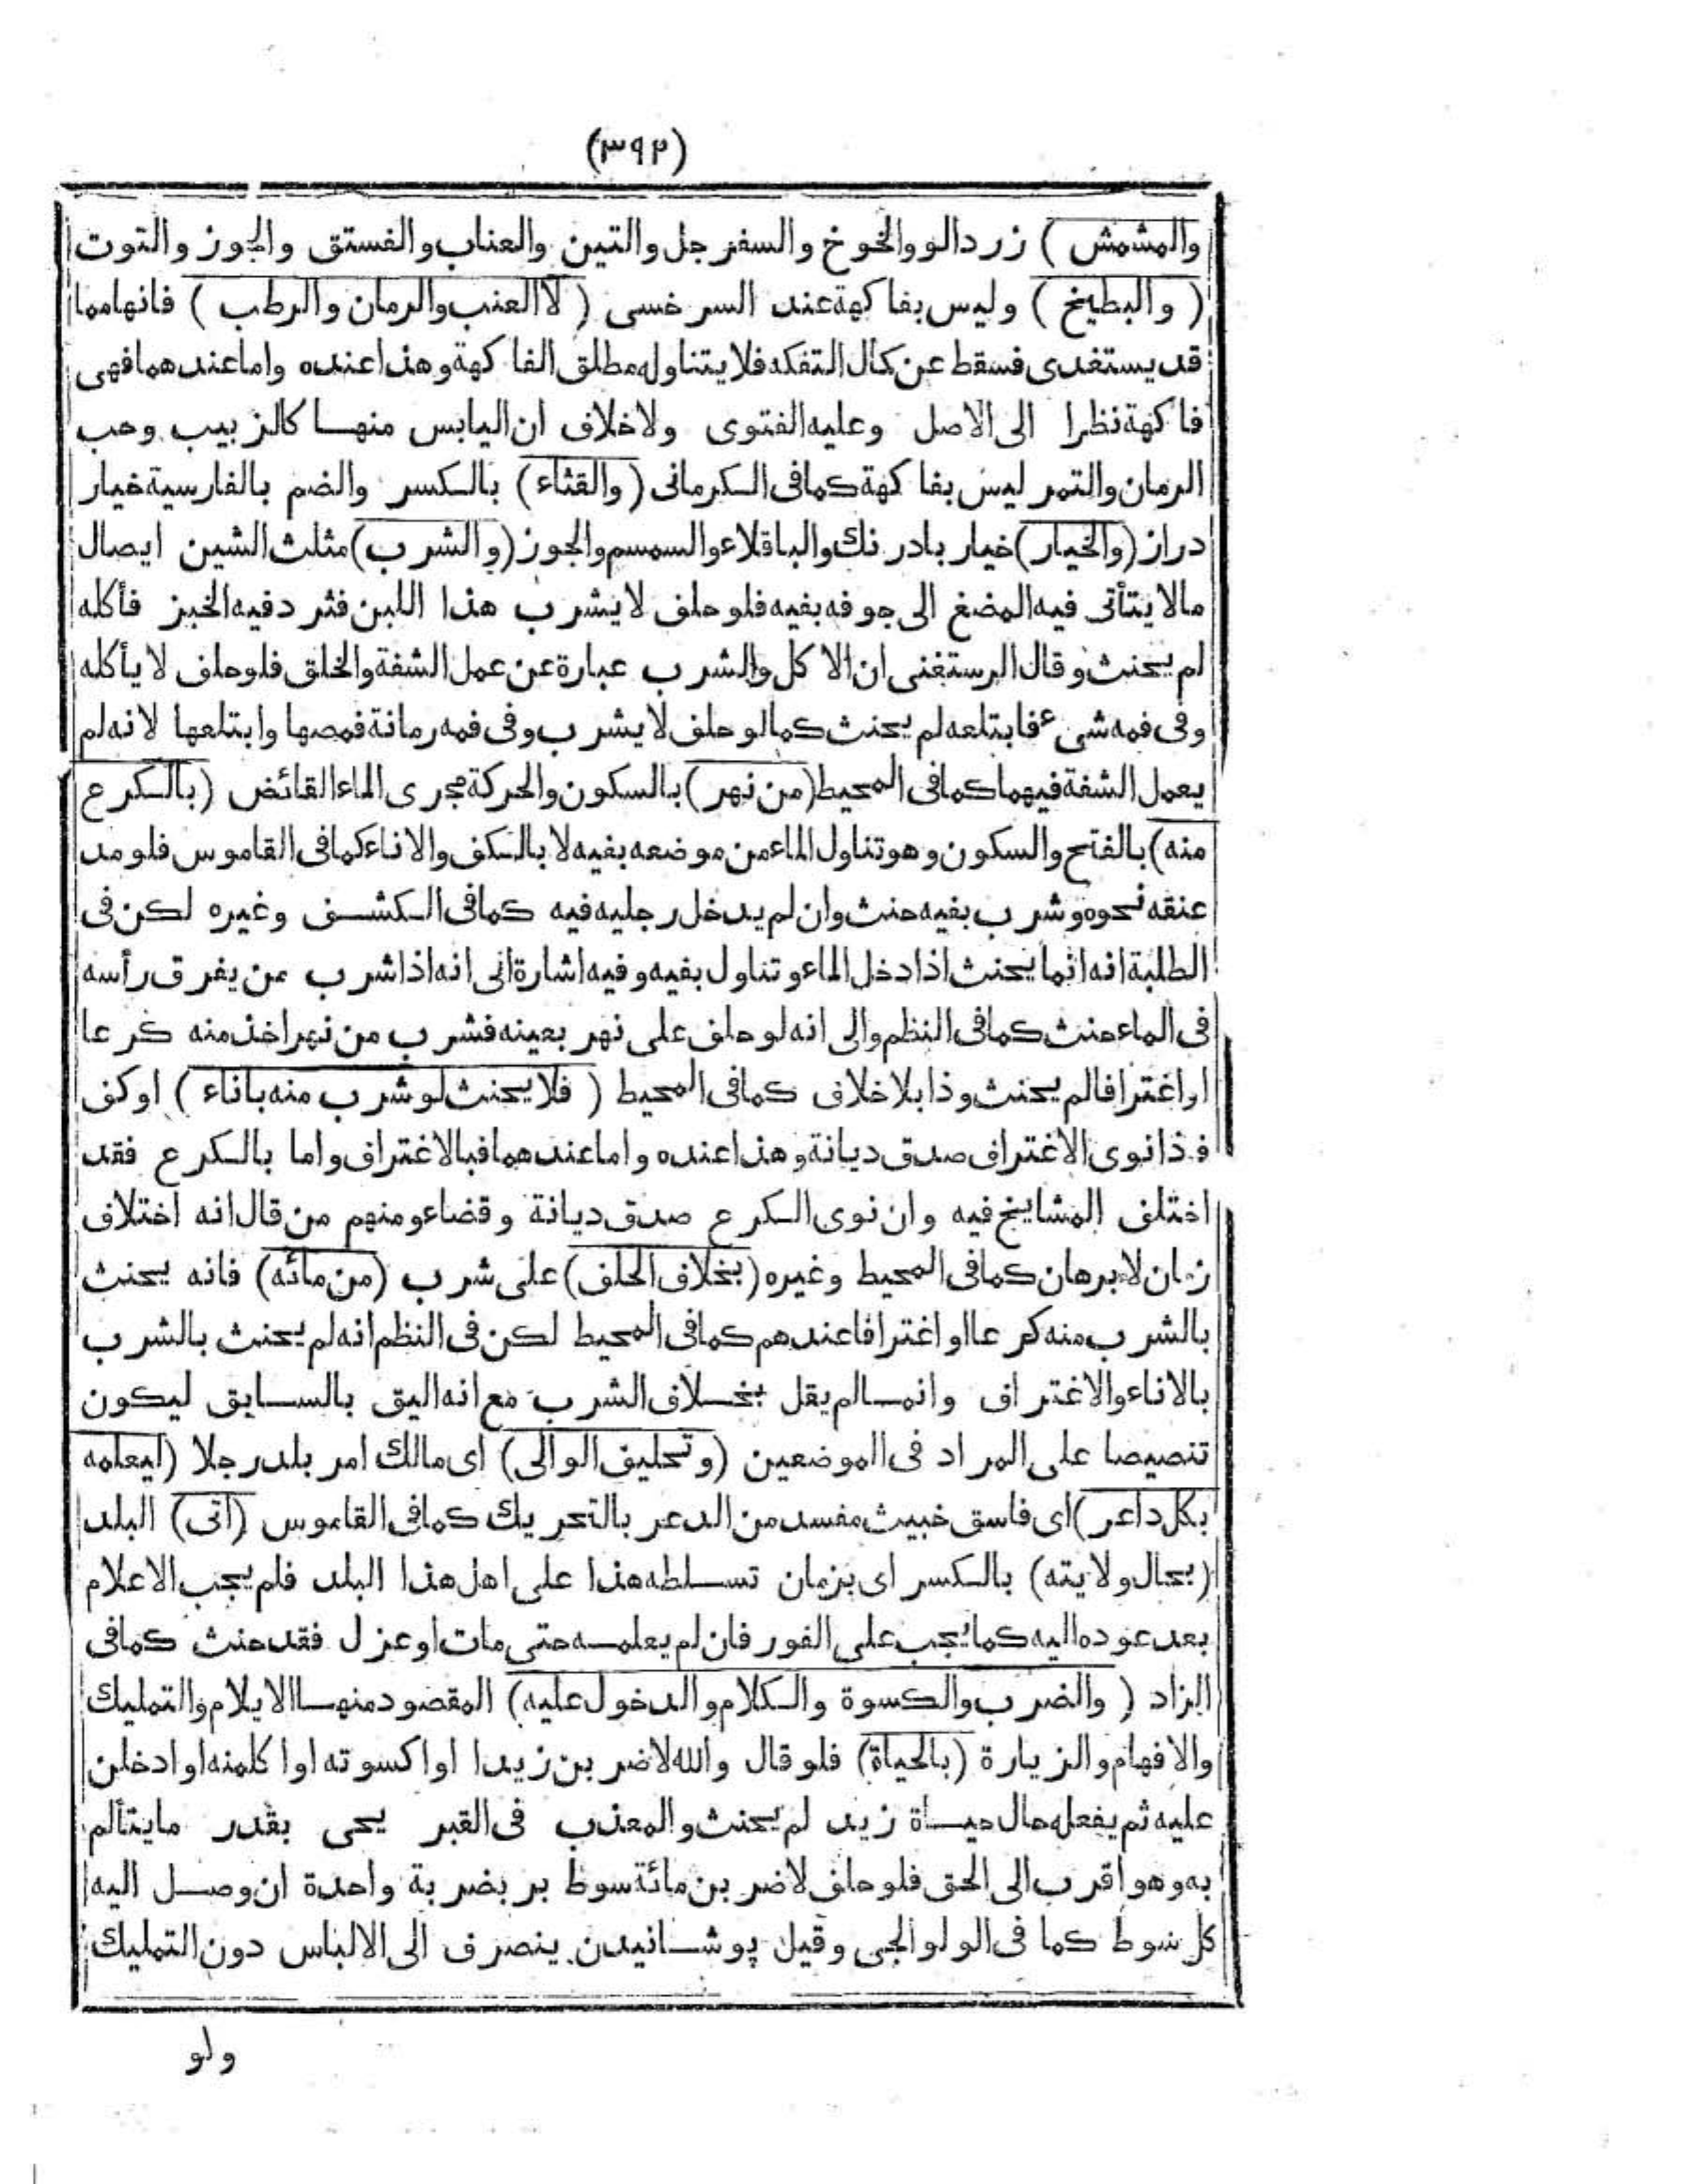 (٣٩٢)
والمشمش) زردالو والخوخ والسفرجل والتين والعناب والفستق والجوز والتوت
(والبطيخ) وليس بفاكهة عند السرخسى (لا العنب والرمان والرطب) فانها مما
قد يستغذى فسقط عن كمال التفكه فلا يتناوله مطلق الفاكهة وهذا عنده واما عندهما فهى
فاكهة نظرا الى الاصل وعليه الفتوى ولا خلاف ان اليابس منها كالزبيب وحب
الرمان والتمر ليس بفاكهة كما فى الكرمانى (والقثاء) بالكسر والضم بالفارسية خيار
دراز (والخيار) خيار بادرنك والباقلاء والسمسم والجوز (والشرب) مثلث الشين ايصال
مالا يتأتى فيه المضغ الى جوفه بفيه فلو حلف لا يشرب هذا اللبن فثرد فيه الخبز فأكله
لم يحنث وقال الرستغنى ان الاكل والشرب عبارة عن عمل الشفة والحلق فلو حلف لا يأكله
وفى فمه شىء فابتلعه لم يحنث كما لو حلف لا يشرب وفى فمه رمانة فمصها وابتلعها لانه لم
يعمل الشفة فيهما كما فى المحيط (من نهر) بالسكون والحركة مجرى الماء الفائض (بالكرع
منه) بالفتح والسكون وهو تناول الماء من موضعه بفيه لا بالكف والاناء كما فى القاموس فلو مد
عنقه نحوه وشرب بفيه حنث وان لم يدخل رجليه فيه كما فى الكشف وغيره لكن فى
الطلبة انه انما يحنث اذا دخل الماء وتناول بفيه وفيه اشارة الى انه اذا شرب من يفرق رأسه
فى الماء حنث كما فى النظم والى انه لو حلف على نهر بعينه فشرب من نهر اخذ منه كرعا
او اغترافا لم يحنث وذا بلا خلاف كما فى المحيط (فلا يحنث لو شرب منه باناء) او كف
فذا نوى الاغتراف صدق ديانة وهذا عنده واما عندهما فبالاغتراف واما بالكرع فقد
اختلف المشايخ فيه وان نوى الكرع صدق ديانة وقضاء ومنهم من قال انه اختلاف
زمان لا برهان كما فى المحيط وغيره (بخلاف الحلف) على شرب (من مائه) فانه يحنث
بالشرب منه كرعا او اغترافا عندهم كما فى المحيط لكن فى النظم انه لم يحنث بالشرب
بالاناء والاغتراف وانما لم يقل بخلاف الشرب مع انه اليق بالسابق ليكون
تنصيصا على المراد فى الموضعين (وتحليف الوالى) اى مالك امر بلد رجلا (ليعلمه
بكل داعر) اى فاسق خبيث مفسد من الدعر بالتحريك كما فى القاموس (اتى) البلد
(بحال ولايته) بالكسر اى بزمان تسلطه هذا على اهل هذا البلد فلم يجب الاعلام
بعد عوده اليه كما يجب على الفور فان لم يعلمه حتى مات او عزل فقد حنث كما فى
الزاد (والضرب والكسوة والكلام والدخول عليه) المقصود منها الايلام والتمليك
والافهام والزيارة (بالحياة) فلو قال والله لاضربن زيدا او اكسوته او اكلمنه او ادخلن
عليه ثم يفعل حال حياة زيد لم يحنث والمعذب فى القبر يحى بقدر ما يتألم
به وهو اقرب الى الحق فلو حلف لاضربن مائة سوط بر بضربة واحدة ان وصل اليه
كل سوط كما فى الولوالجى وقيل پوشانيدن ينصرف الى الالباس دون التمليك
ولو